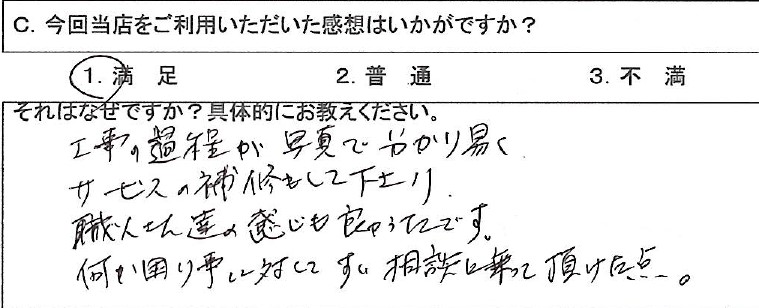 C. 今回当店をご利用いただいた感想はいかがですか？
1. 満　足　　2. 普　通　　3. 不　満
それはなぜですか？具体的にお教えください。
工事の過程が写真で分かり易く
サービスの補修もして下さり
職人さん達の感じも良かったです。
何か困り事に対してすぐ相談に乗って頂けた点。